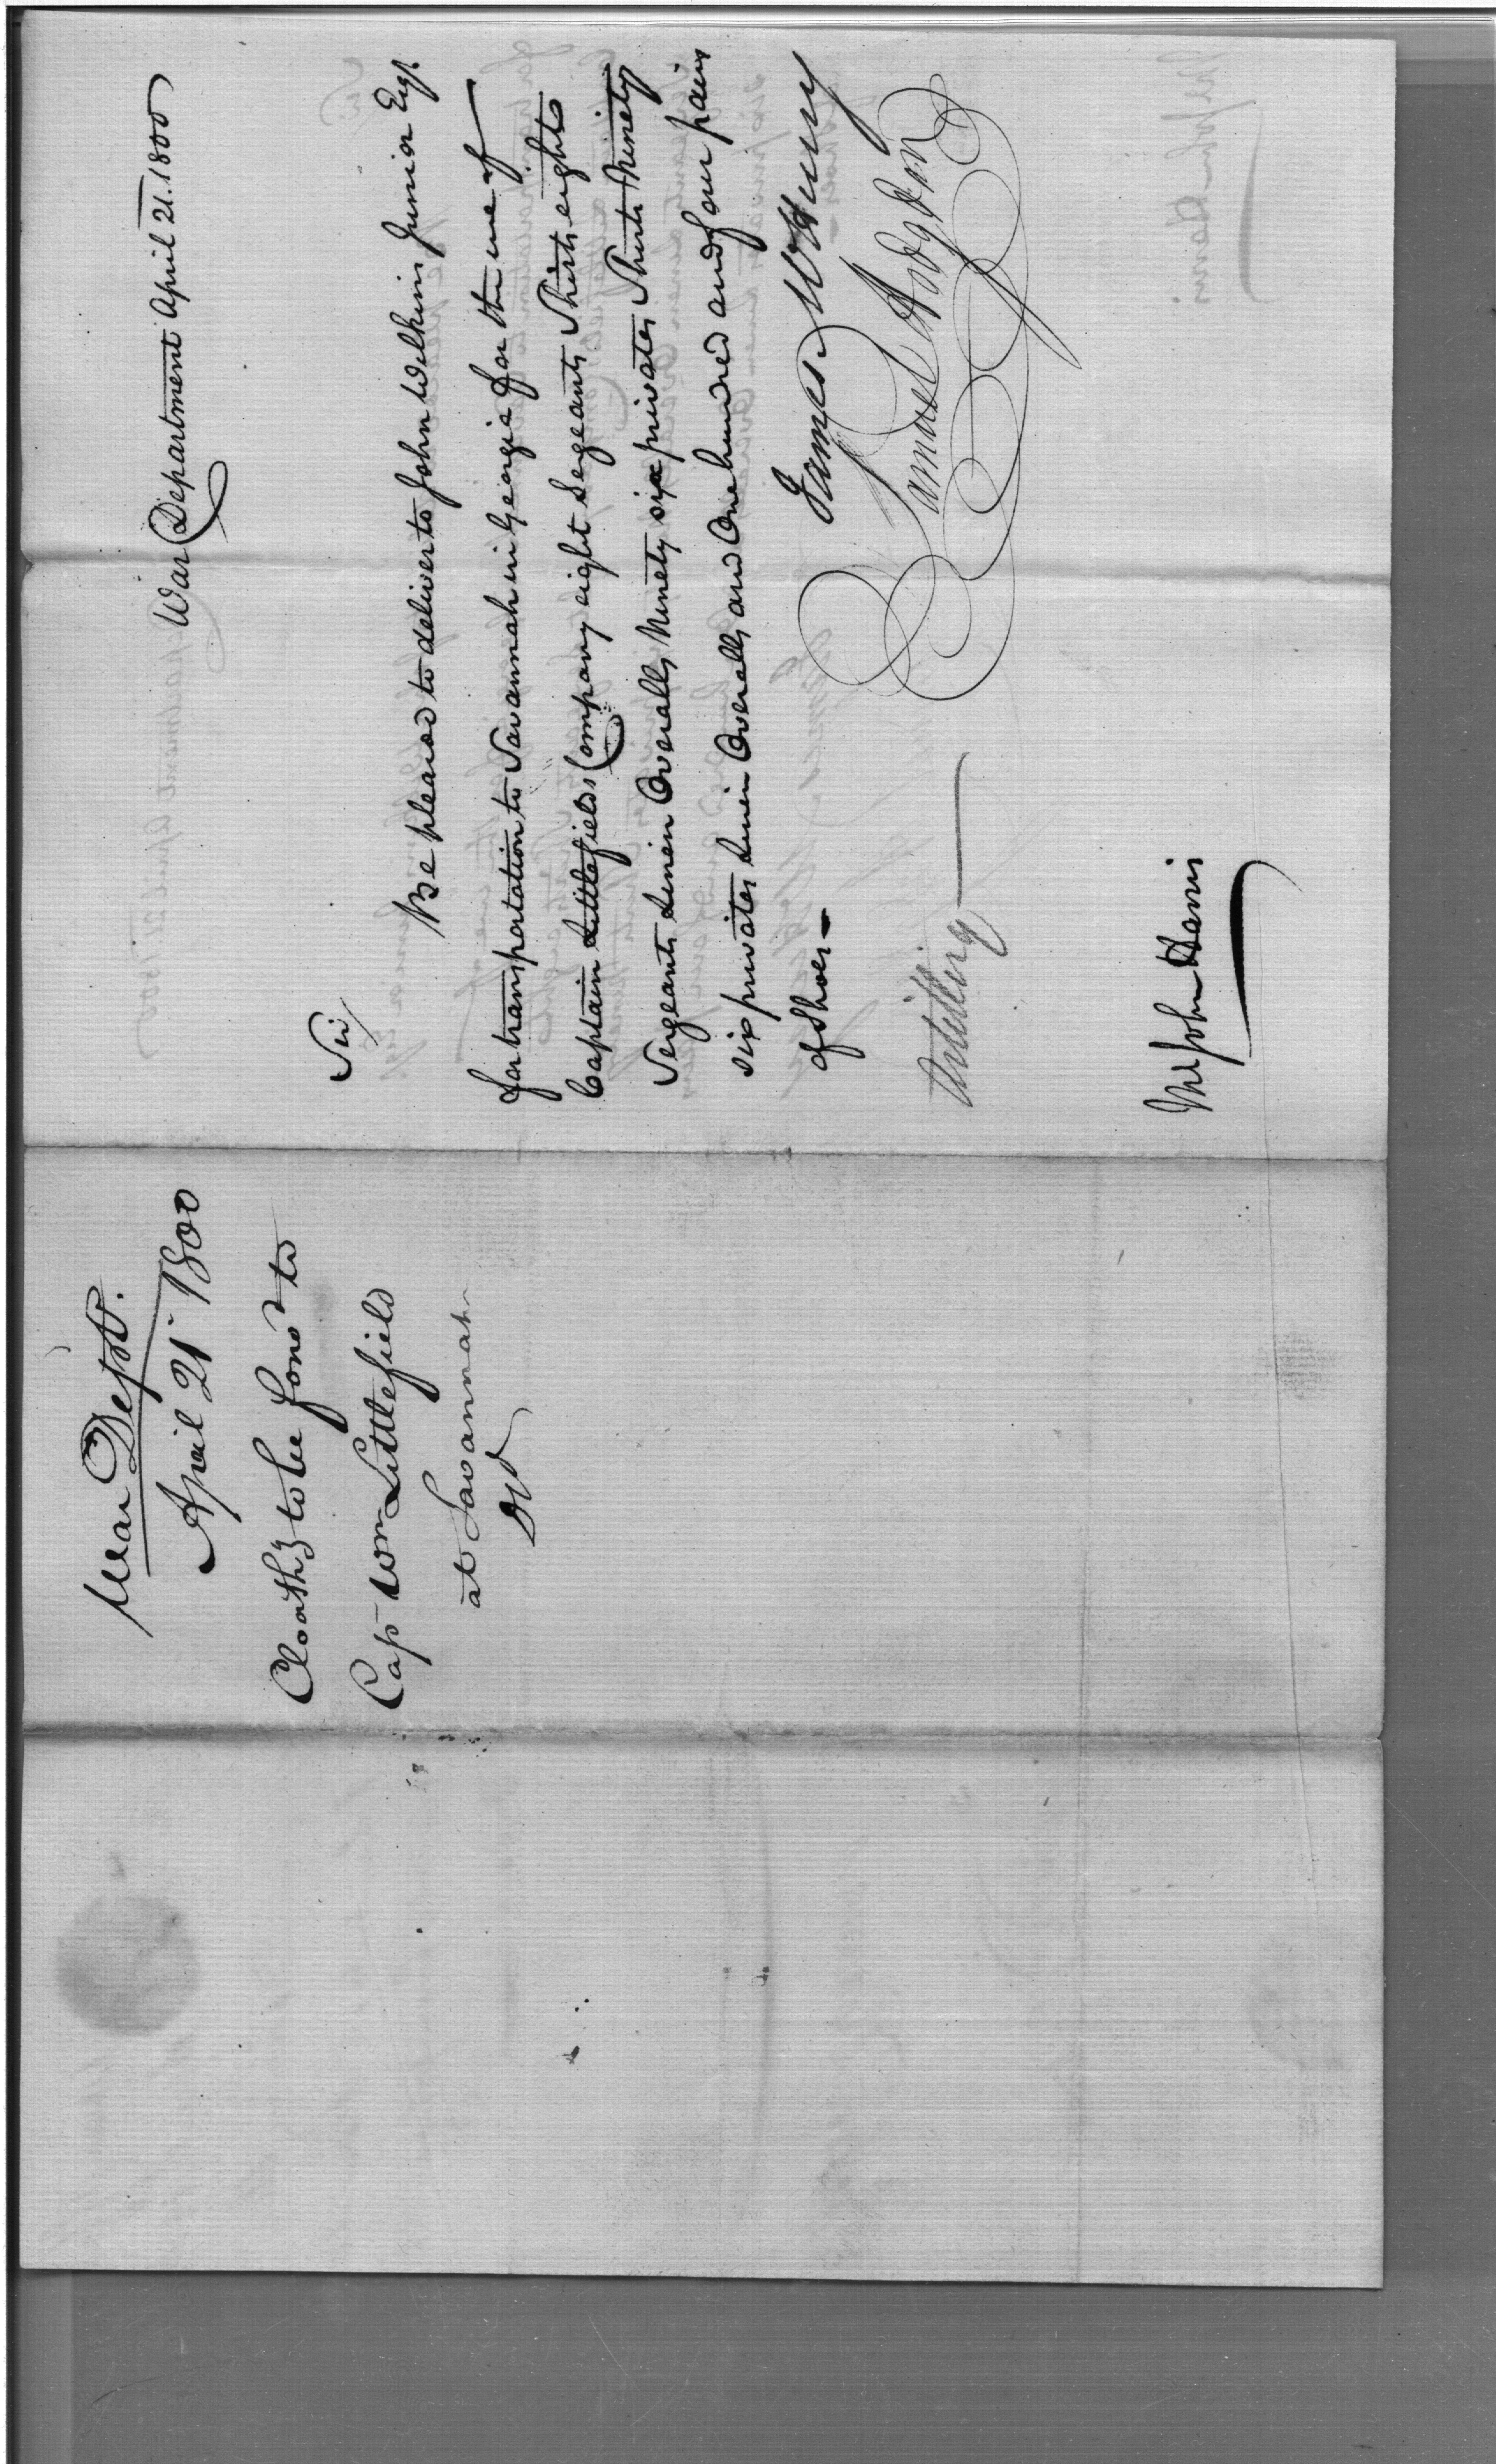 War Department April 21. 1800
Sir/
Be pleased to deliver to John Wilkins Junior Esqr.
for transportation to Savannah in Georgia for the use of
Captain Littlefields Company eight Sergeants Shirts eight
Sergeants Linen Overalls Ninety six privates Shirts Ninety
six privates Linen Overalls and One hundred and four pairs
of Shoes—
James McHenry
Samuel Hodgdon
Artillery
Mr John Harris
War Dept.
April 21 1800
Cloathg to be forwd to
Cap Wm Littlefield
at Savannah